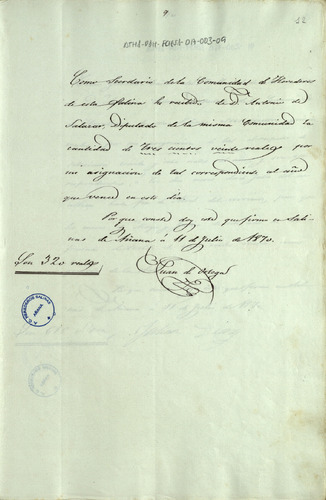 9
12
Como Secretario de la Comunidad de Herederos
de esta Salina he recibido de Dn Antonio de
Salazar, Diputado de la misma Comunidad la
cantidad de tres cientos veinte reales por
mi asignacion de tal correspondiente al año
que vence en este dia.
Para que conste doy este que firmo en Sali-
nas de Añana á 11 de Julio de 1870.
Juan de
Son 320 reales